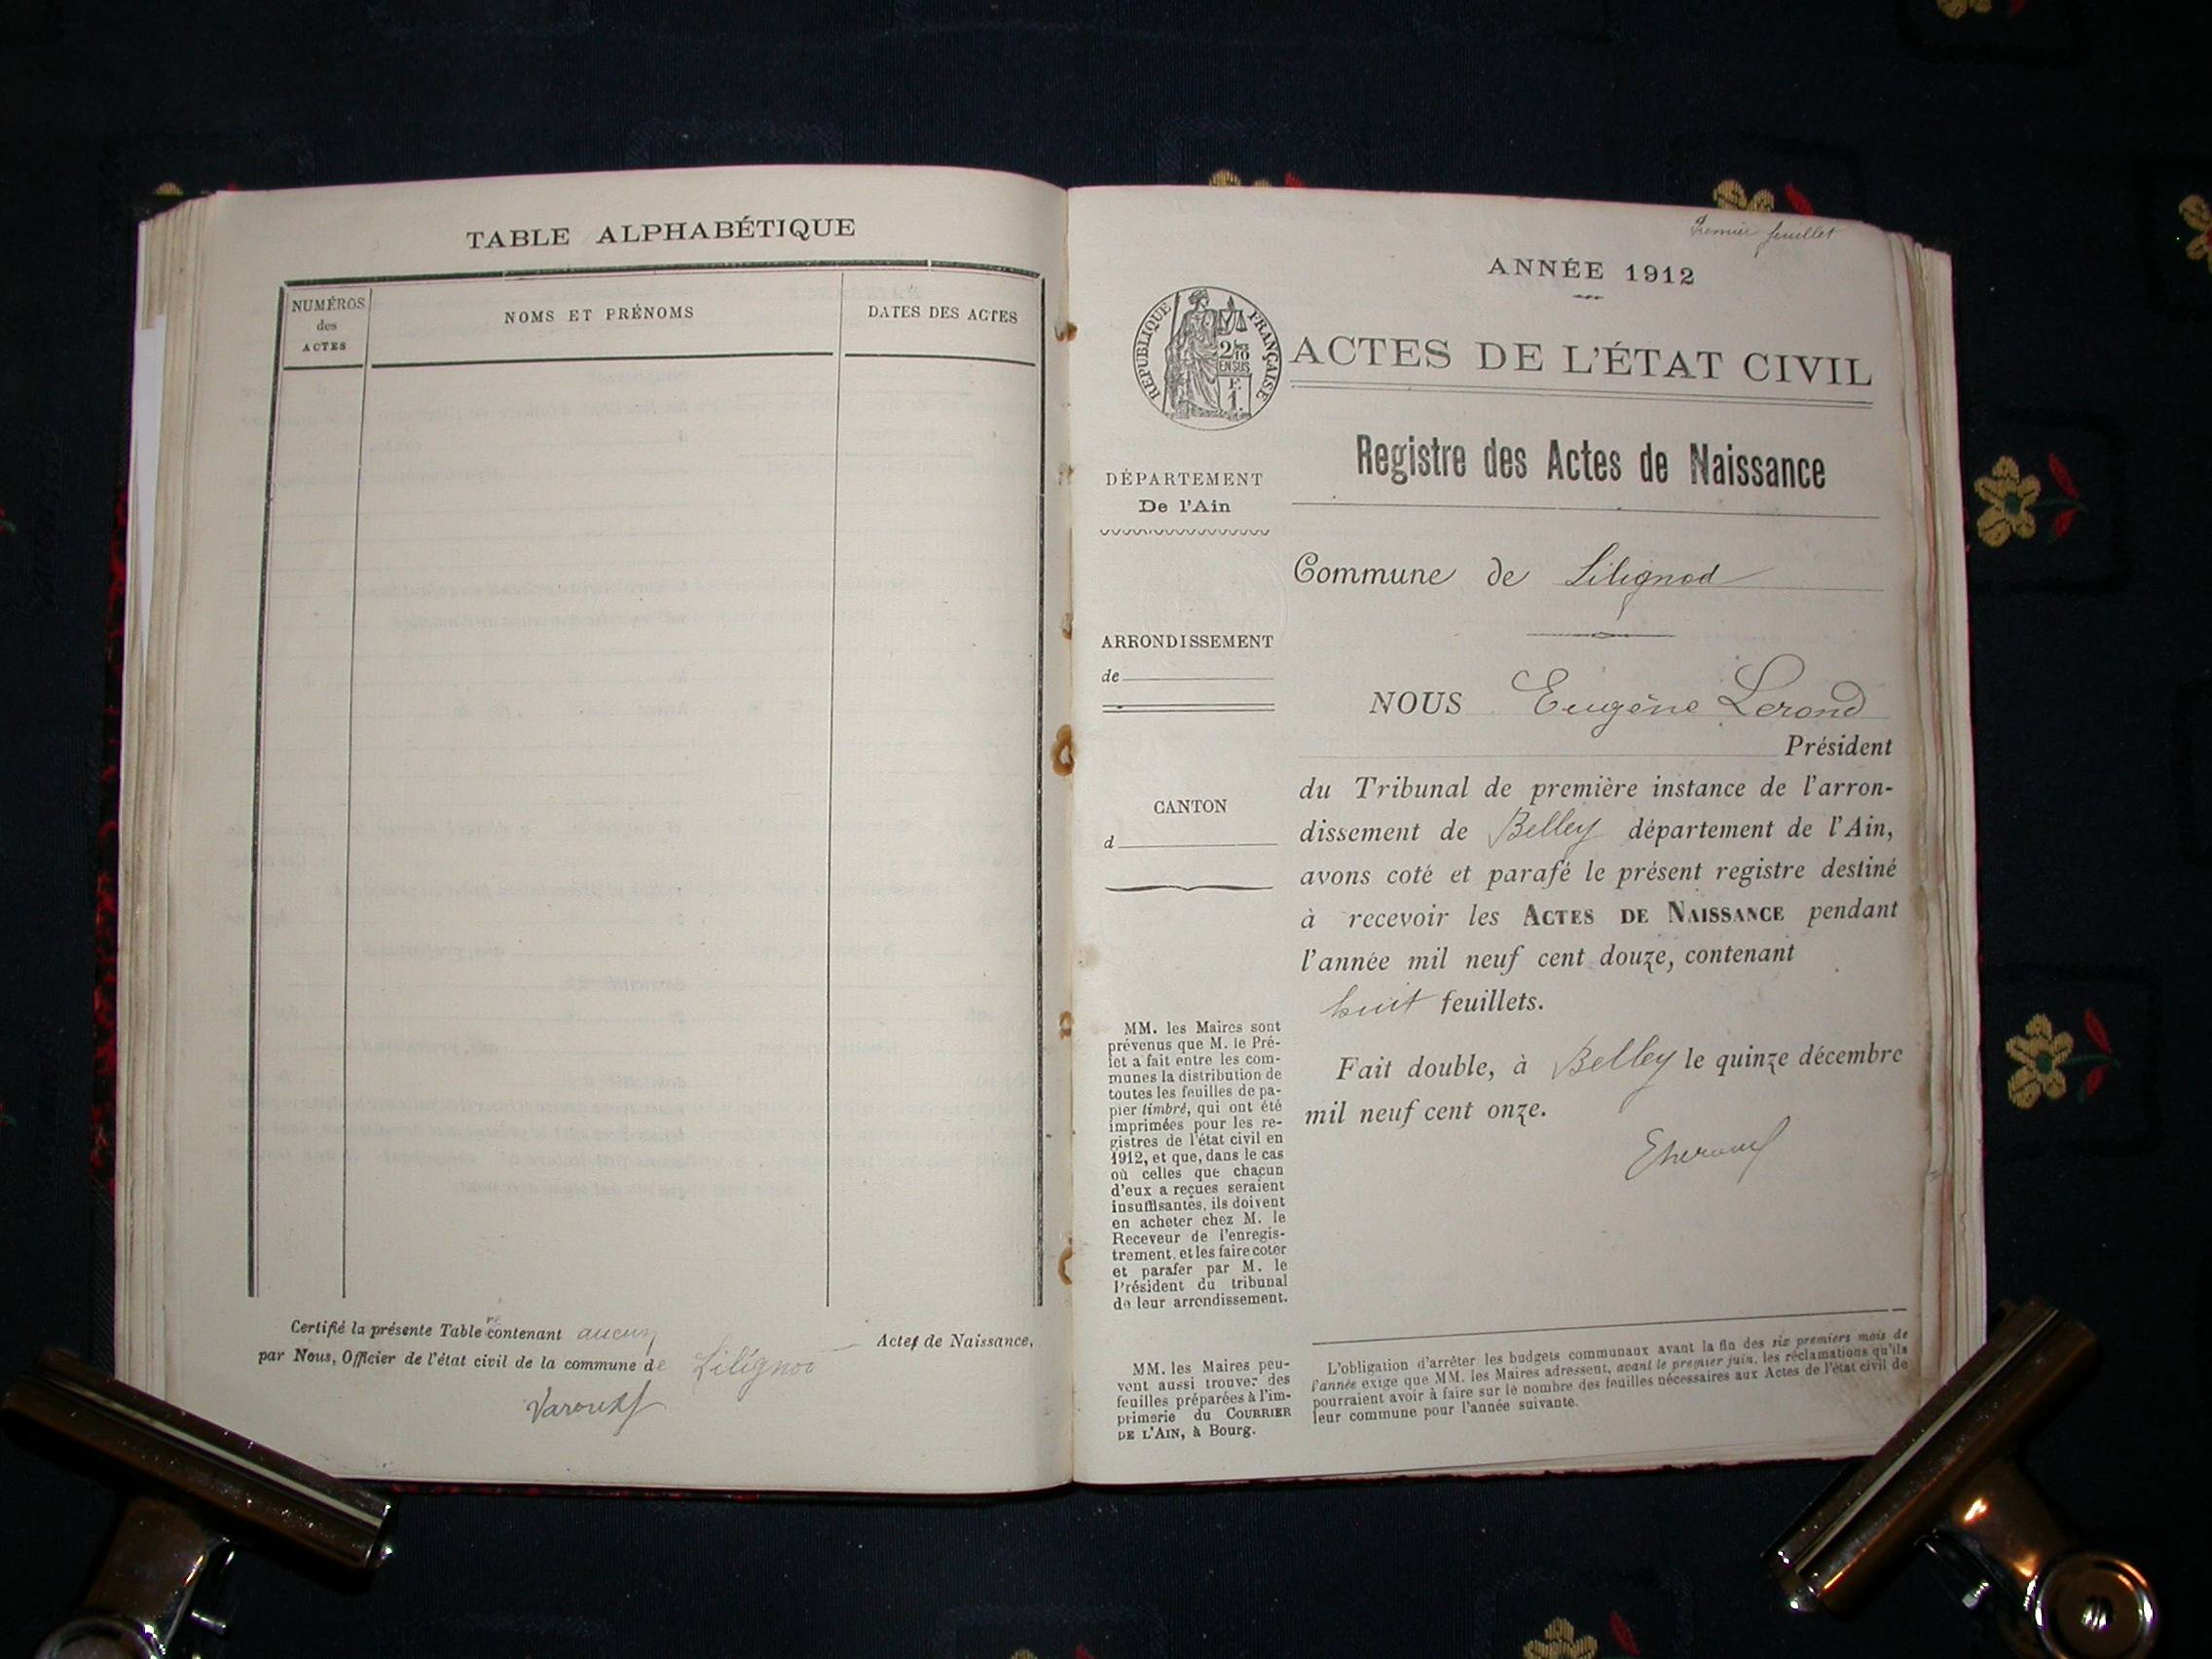 TABLE ALPHABÉTIQUE
NUMÉROS
des
ACTES
NOMS ET PRÉNOMS
DATES DES ACTES
Certifié la présente Table contenant aucun Actes de Naissance,
par Nous, Officier de l'état civil de la commune de Lilignod
Premier feuillet
ANNÉE 1912
RÉPUBLIQUE FRANÇAISE
2/10
EN SUS
ACTES DE L'ÉTAT CIVIL
Registre des Actes de Naissance
DÉPARTEMENT
De l'Ain
Commune de Lilignod
ARRONDISSEMENT
de
NOUS Eugène Lerond
Président
du Tribunal de première instance de l'arron-
dissement de Belley département de l'Ain,
avons coté et parafé le présent registre destiné
à recevoir les ACTES DE NAISSANCE pendant
l'année mil neuf cent douze, contenant
huit feuillets.
Fait double, à Belley le quinze décembre
mil neuf cent onze.
CANTON
d
MM. les Maires sont
prévenus que M. le Pré-
fet a fait entre les com-
munes la distribution de
toutes les feuilles de pa-
pier timbré, qui ont été
imprimées pour les re-
gistres de l'état civil en
1912, et que, dans le cas
où celles que chacun
d'eux a reçues seraient
insuffisantes, ils doivent
en acheter chez M. le
Receveur de l'enregis-
trement, et les faire coter
et parafer par M. le
Président du tribunal
de leur arrondissement.
MM. les Maires peu-
vent aussi trouver des
feuilles préparées à l'im-
primerie du COURRIER
DE L'AIN, à Bourg.
L'obligation d'arrêter les budgets communaux avant la fin des six premiers mois de
l'année exige que MM. les Maires adressent, avant le premier juin, les réclamations qu'ils
pourraient avoir à faire sur le nombre des feuilles nécessaires aux Actes de l'état civil de
leur commune pour l'année suivante.